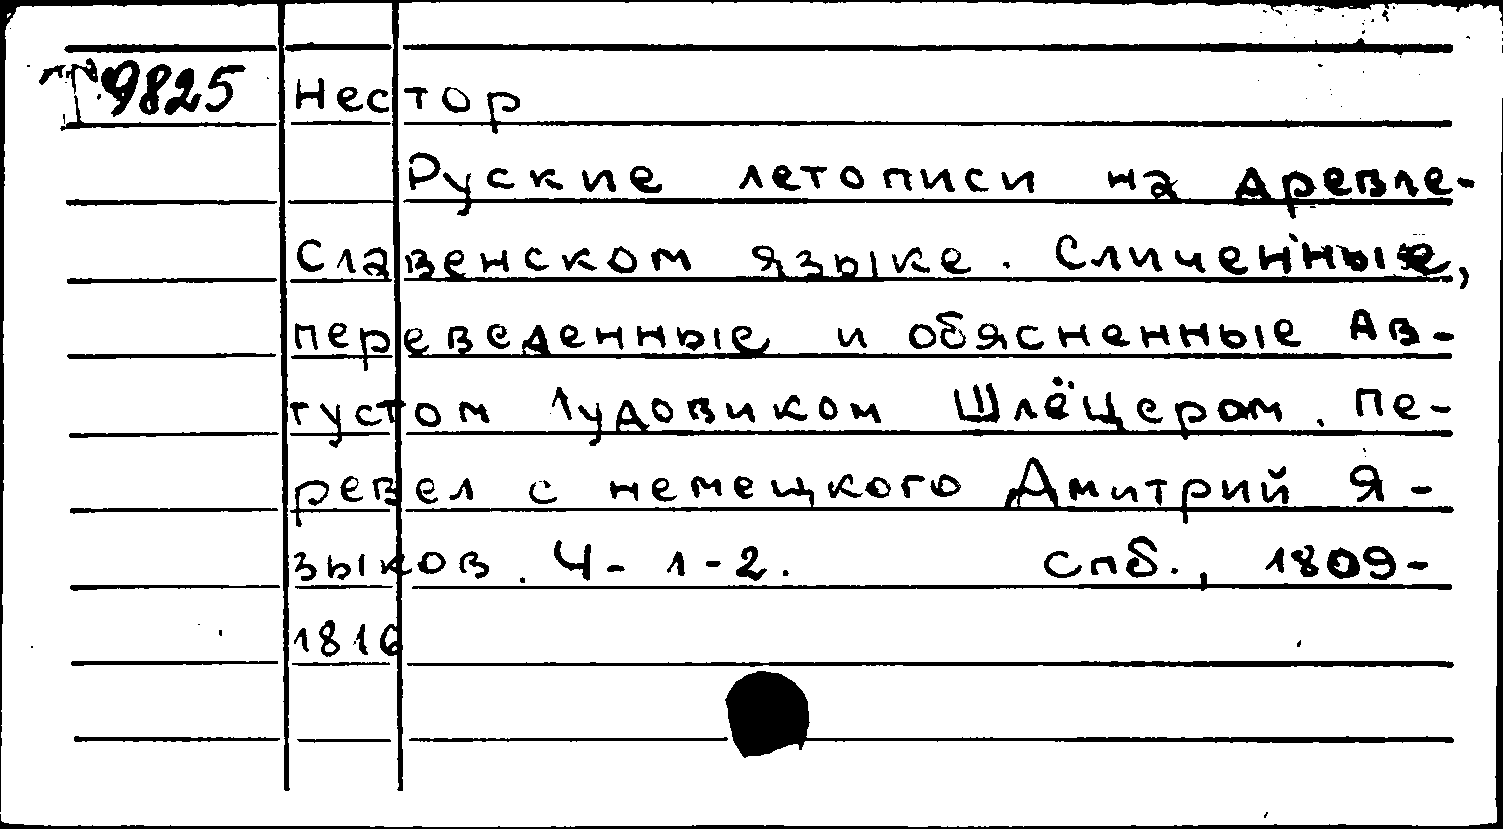 9825 Нестор
Руские летописи на древле-
Славенском языке. Сличенные,
переведенные и обясненные Ав-
густом Лудовиком Шлёцером. Пе-
ревел с немецкого Дмитрий Я-
зыков. Ч- 1-2. Спб., 1809-
1816